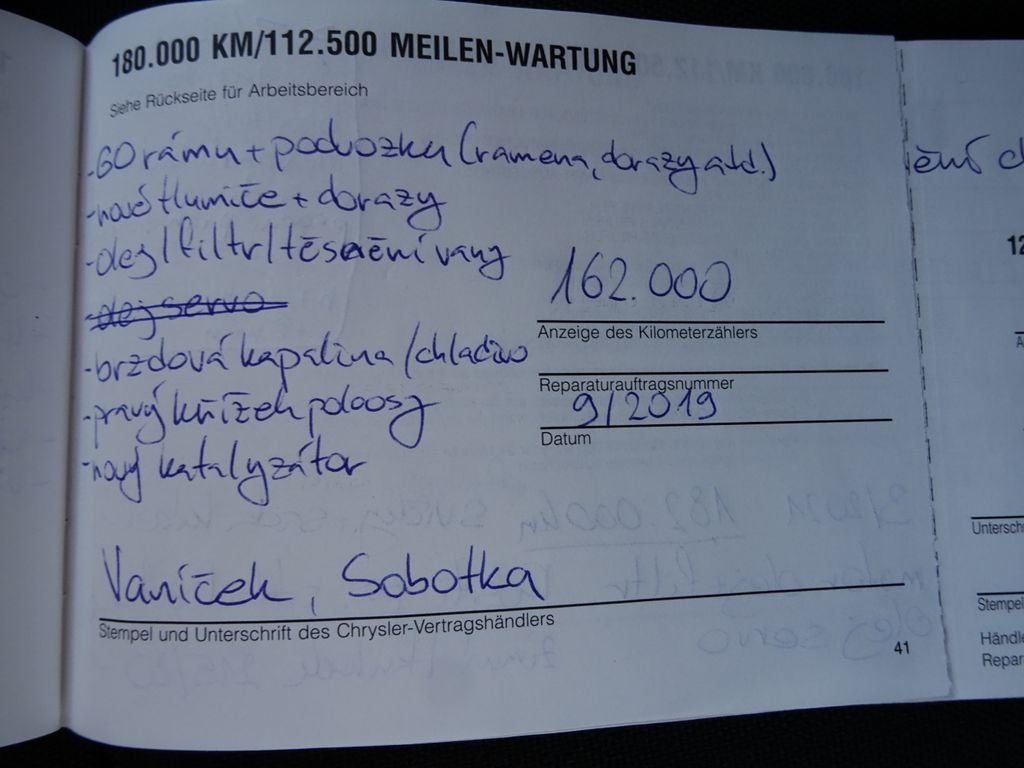 180.000 KM/112.500 MEILEN-WARTUNG
Siehe Rückseite für Arbeitsbereich
-GO rámu + podvozku (ramena, dorazy atd.)
-nové tlumiče + dorazy
-olej/filtr/těsnění vany
-olej servo
-brzdová kapalina/chladivo
-pravý křížek poloosy
-nový katalyzátor
162.000
Anzeige des Kilometerzählers
Reparaturauftragsnummer
9/2019
Datum
Vaníček, Sobotka
Stempel und Unterschrift des Chrysler-Vertragshändlers
41
ění
12
A
Untersch
Stempel
Händle
Repar